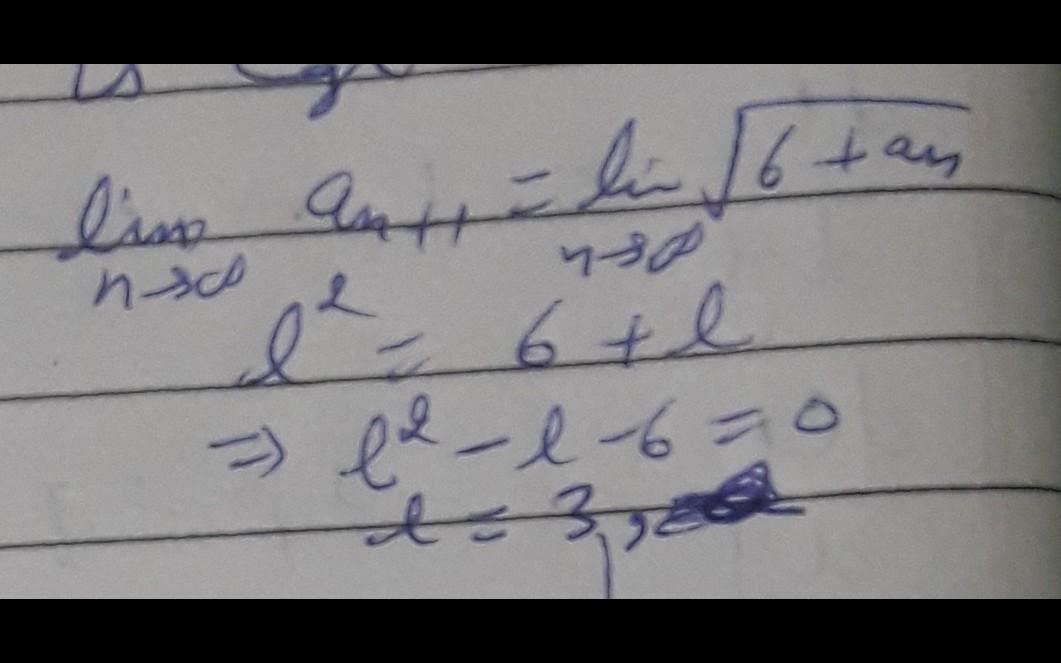 is
lim n→∞ a_{n+1} = lim n→∞ √(6 + a_n)
l² = 6 + l
⇒ l² - l - 6 = 0
l = 3,